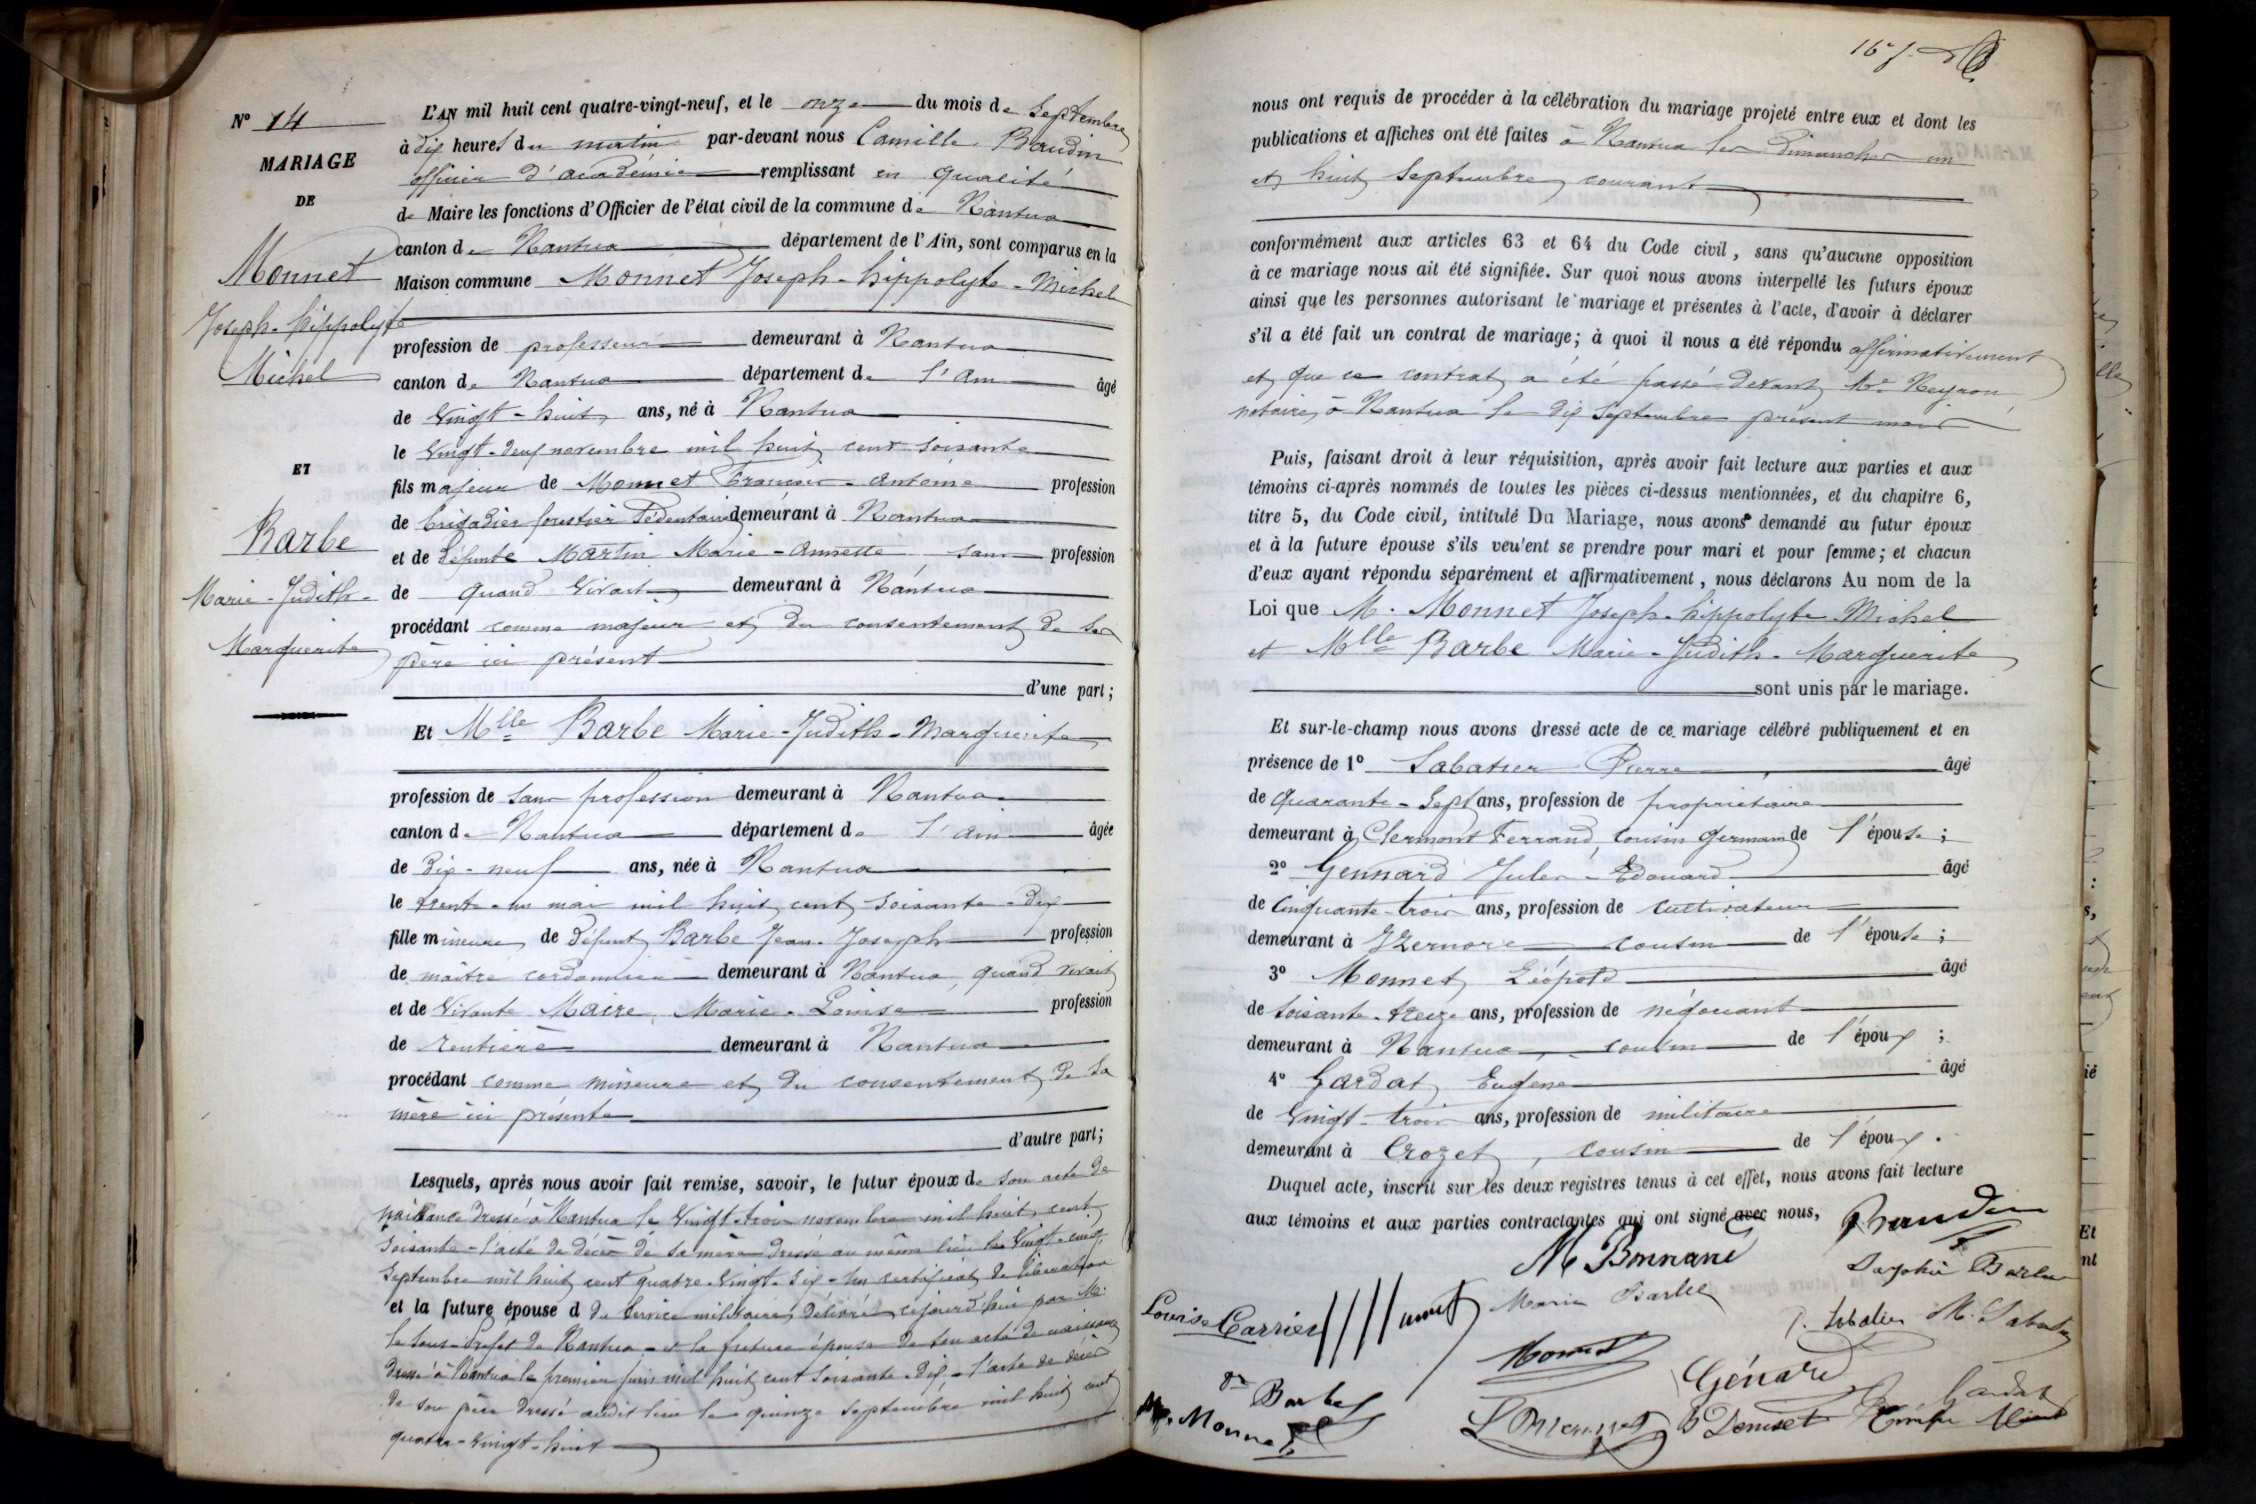 N° 14
MARIAGE
DE
Monnet
Joseph-hippolyte
Michel
ET
Barbe
Marie-Judith-
Marguerite
L'AN mil huit cent quatre-vingt-neuf, et le onze du mois de Septembre
à dix heures du matin par-devant nous Camille Baudin
officier d'académie remplissant en qualité
de Maire les fonctions d'Officier de l'état civil de la commune de Nantua
canton de Nantua département de l'Ain, sont comparus en la
Maison commune Monnet Joseph-hippolyte-Michel
profession de professeur demeurant à Nantua
canton de Nantua département de l'Ain âgé
de Vingt-huit ans, né à Nantua
le Vingt-deux novembre mil huit cent soixante
fils majeur de Monnet François-Antoine profession
de brigadier forestier sédentaire demeurant à Nantua
et de défunte Martin Marie-Annette sans profession
de quand vivait demeurant à Nantua
procédant comme majeur et du consentement de son
père ici présent
d'une part;
Et Mlle Barbe Marie-Judith-Marguerite
profession de sans profession demeurant à Nantua
canton de Nantua département de l'Ain âgée
de dix-neuf ans, née à Nantua
le trente-un mai mil huit cent soixante-dix
fille mineure de défunt Barbe Jean-Joseph profession
de maître cordonnier demeurant à Nantua, quand vivait
et de vivante Maire Marie-Louise profession
de rentière demeurant à Nantua
procédant comme mineure et du consentement de sa
mère ici présente
d'autre part;
Lesquels, après nous avoir fait remise, savoir, le futur époux de son acte de
naissance dressé à Nantua le Vingt-trois novembre mil huit cent
soixante - l'acte de décès de sa mère dressé au même lieu le Vingt-cinq
Septembre mil huit cent quatre-vingt-six - Un certificat de libération
et la future épouse d de service militaire délivré cejourd'hui par M.
le Sous-Préfet de Nantua - et la future épouse de son acte de naissance
dressé à Nantua le premier juin mil huit cent soixante-dix - l'acte de décès
de son père dressé audit lieu le quinze septembre mil huit cent
quatre-vingt-huit
167.
nous ont requis de procéder à la célébration du mariage projeté entre eux et dont les
publications et affiches ont été faites à Nantua les Dimanches un
et huit Septembre courant
conformément aux articles 63 et 64 du Code civil, sans qu'aucune opposition
à ce mariage nous ait été signifiée. Sur quoi nous avons interpellé les futurs époux
ainsi que les personnes autorisant le mariage et présentes à l'acte, d'avoir à déclarer
s'il a été fait un contrat de mariage; à quoi il nous a été répondu affirmativement
et que ce contrat a été passé devant Me Neyron
notaire à Nantua le dix Septembre présent mois
Puis, faisant droit à leur réquisition, après avoir fait lecture aux parties et aux
témoins ci-après nommés de toutes les pièces ci-dessus mentionnées, et du chapitre 6,
titre 5, du Code civil, intitulé Du Mariage, nous avons demandé au futur époux
et à la future épouse s'ils veulent se prendre pour mari et pour femme; et chacun
d'eux ayant répondu séparément et affirmativement, nous déclarons Au nom de la
Loi que M. Monnet Joseph-hippolyte Michel
et Mlle Barbe Marie-Judith-Marguerite
sont unis par le mariage.
Et sur-le-champ nous avons dressé acte de ce mariage célébré publiquement et en
présence de 1° Sabatier Pierre âgé
de quarante-sept ans, profession de propriétaire
demeurant à Clermont Ferrand, cousin germain de l'épouse;
2° Gennard Jules-Edouard âgé
de Cinquante-trois ans, profession de cultivateur
demeurant à Izernore cousin de l'épouse;
3° Monnet Léopold âgé
de soixante-treize ans, profession de négociant
demeurant à Nantua, cousin de l'époux;
4° Gardat Eugène âgé
de vingt-trois ans, profession de militaire
demeurant à Crozet, cousin de l'époux.
Duquel acte, inscrit sur les deux registres tenus à cet effet, nous avons fait lecture
aux témoins et aux parties contractantes qui ont signé avec nous,
Baudin
M Bonnane
Barbe
Marie Barbe
Louise Carrier
P. Sabatier
M. Sabatier
Monnet
Génard
Gardat
Barbe
M. Monnet
L Monnet